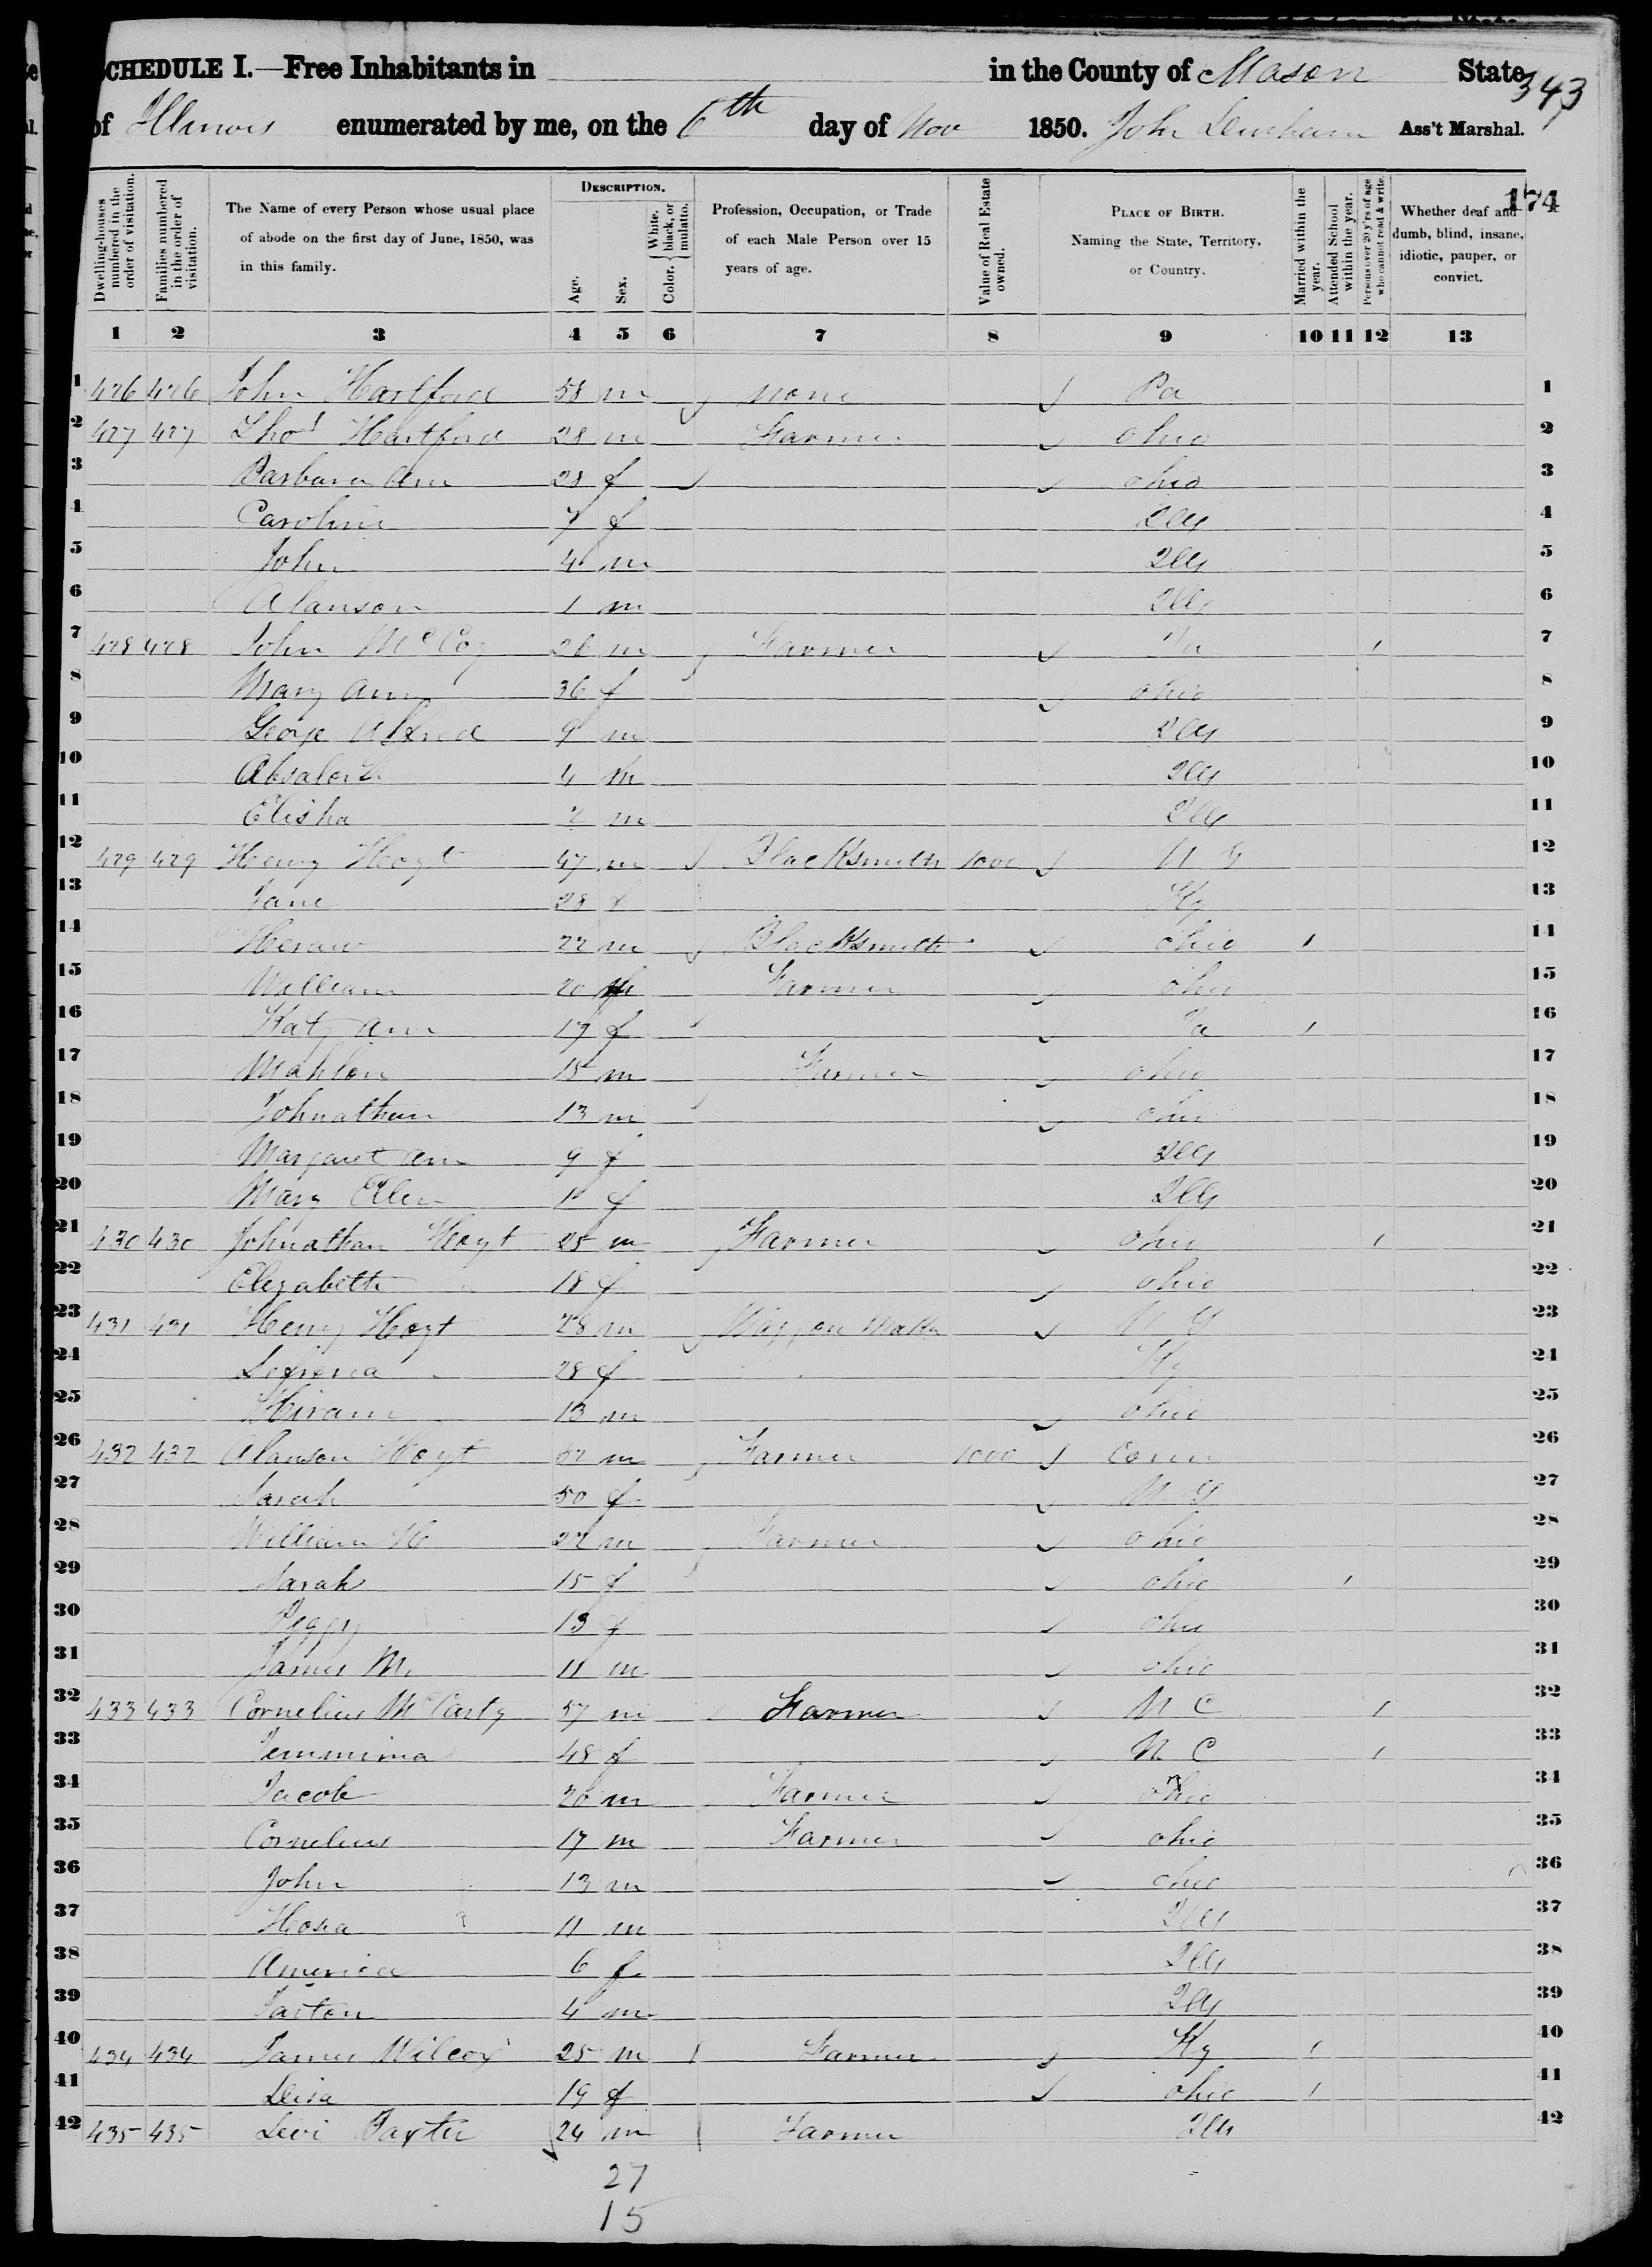 SCHEDULE I.—Free Inhabitants in in the County of Mason State
343
of Illinois enumerated by me, on the 6th day of Nov 1850. John Ass't Marshal.
174
Dwelling-houses numbered in the order of visitation.
Families numbered in the order of visitation.
The Name of every Person whose usual place of abode on the first day of June, 1850, was in this family.
DESCRIPTION.
Age.
Sex.
Color. { White, black, or mulatto.
Profession, Occupation, or Trade of each Male Person over 15 years of age.
Value of Real Estate owned.
PLACE OF BIRTH. Naming the State, Territory, or Country.
Married within the year.
Attended School within the year.
Persons over 20 y'rs of age who cannot read & write.
Whether deaf and dumb, blind, insane, idiotic, pauper, or convict.
1 2 3 4 5 6 7 8 9 10 11 12 13
1 426 426 John Hartford 58 m none Pa 1
2 427 427 Thos Hartford 28 m Farmer Ohio 2
3 Barbara Ann 28 f ohio 3
4 Caroline 7 f Ills 4
5 John 4 m Ills 5
6 Alanson 1 m Ills 6
7 428 428 John McCoy 26 m Farmer 1 7
8 Mary Ann 36 f ohio 8
9 George Alfred 9 m Ills 9
10 4 m Ills 10
11 Elisha 2 m Ills 11
12 429 429 Henry Hoyt 47 m Blacksmith 1000 N Y 12
13 Jane 28 f Ky 13
14 22 m Blacksmith ohio 1 14
15 William 20 m Farmer ohio 15
16 Katy Ann 17 f 1 16
17 Mahlon 15 m Farmer ohio 17
18 Johnathan 13 m ohio 18
19 Margaret Ann 9 f Ills 19
20 Mary Ellen 1 f Ills 20
21 430 430 Johnathan Hoyt 25 m Farmer ohio 1 21
22 Elezabeth 18 f ohio 22
23 431 431 Henry Hoyt 28 m Waggon Maker N Y 23
24 28 f Ky 24
25 Hiram 13 m ohio 25
26 432 432 Alanson Hoyt 52 m Farmer 1000 Conn 26
27 Sarah 50 f N Y 27
28 William H 22 m Farmer ohio 28
29 Sarah 15 f ohio 1 29
30 Peggy 13 f ohio 30
31 James M. 11 m ohio 31
32 433 433 Cornelius McCarty 57 m Farmer N C 1 32
33 Jemmima 48 f N C 1 33
34 Jacob 20 m Farmer ohio 34
35 Cornelius 17 m Farmer ohio 35
36 John 13 m ohio 36
37 Hosea 11 m Ills 37
38 America 6 f Ills 38
39 4 m Ills 39
40 434 434 James Wilcox 25 m Farmer Ky 1 40
41 19 f ohio 1 41
42 435 435 Levi Baxter 24 m Farmer Ills 42
27
15